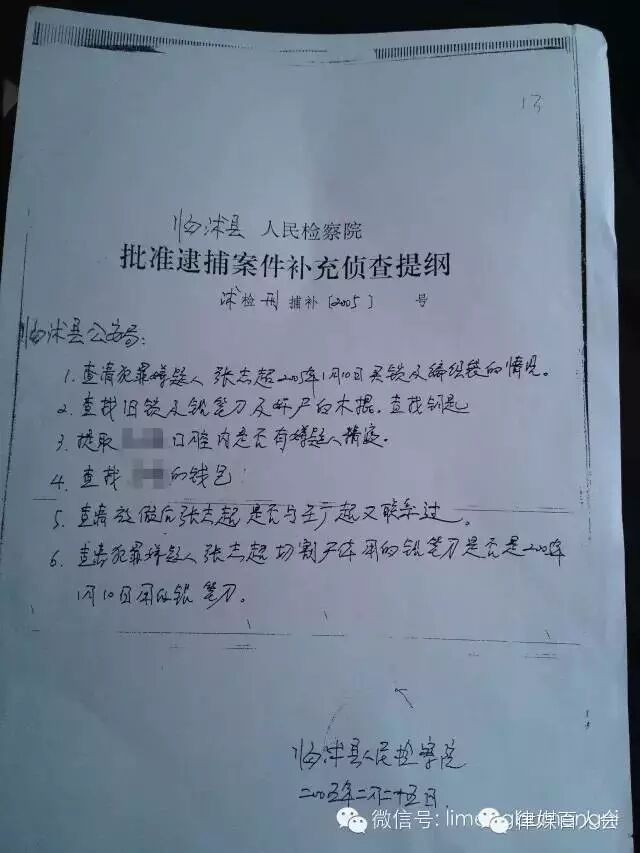 13
临沭县 人民检察院
批准逮捕案件补充侦查提纲
沭检刑捕补〔2005〕 号
临沭县公安局：
1. 查清犯罪嫌疑人张志超2005年1月10日买锁及编织袋的情况。
2. 查找旧锁及铅笔刀及奸尸的木棍。查找钥匙
3. 提取 口腔内是否有嫌疑人精液。
4. 查找 的钱包
5. 查清放假后张志超是否与王广超又联系过。
6. 查清犯罪嫌疑人张志超切割尸体用的铅笔刀是否是2005年
1月10日用的铅笔刀。
临沭县人民检察院
二00五年二月二十五日
微信号: limeng
律媒百人会